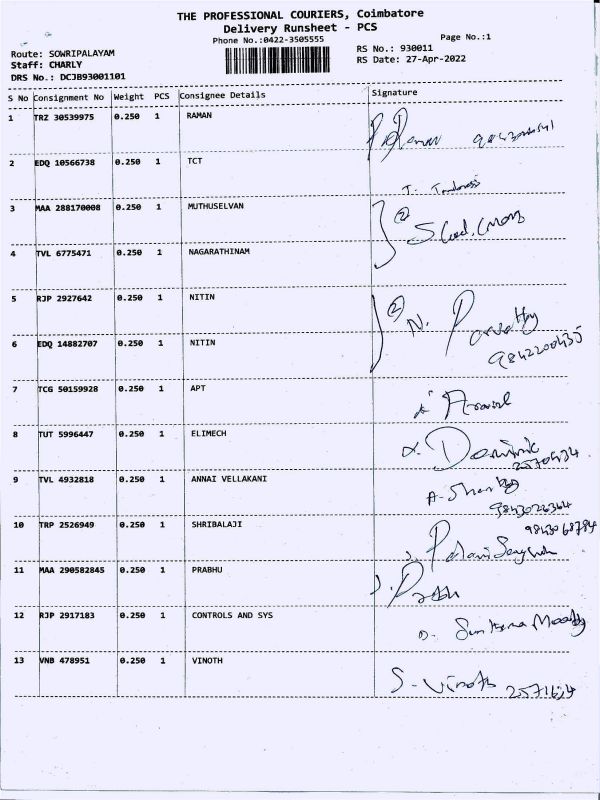 THE PROFESSIONAL COURIERS, Coimbatore
Delivery Runsheet - PCS
Phone No.:0422-3505555
Page No.:1
Route: SOWRIPALAYAM
RS No.: 930011
Staff: CHARLY
RS Date: 27-Apr-2022
DRS No.: DCJB93001101
S No Consignment No Weight PCS Consignee Details Signature
1 TRZ 30539975 0.250 1 RAMAN
2 EDQ 10566738 0.250 1 TCT
3 MAA 288170008 0.250 1 MUTHUSELVAN
2
4 TVL 6775471 0.250 1 NAGARATHINAM
5 RJP 2927642 0.250 1 NITIN
2 N.
6 EDQ 14882707 0.250 1 NITIN
9842200435
7 TCG 50159928 0.250 1 APT
8 TUT 5996447 0.250 1 ELIMECH
Dominic
9 TVL 4932818 0.250 1 ANNAI VELLAKANI
10 TRP 2526949 0.250 1 SHRIBALAJI
9843068784
11 MAA 290582845 0.250 1 PRABHU
12 RJP 2917183 0.250 1 CONTROLS AND SYS
13 VNB 478951 0.250 1 VINOTH
S. Vinoth